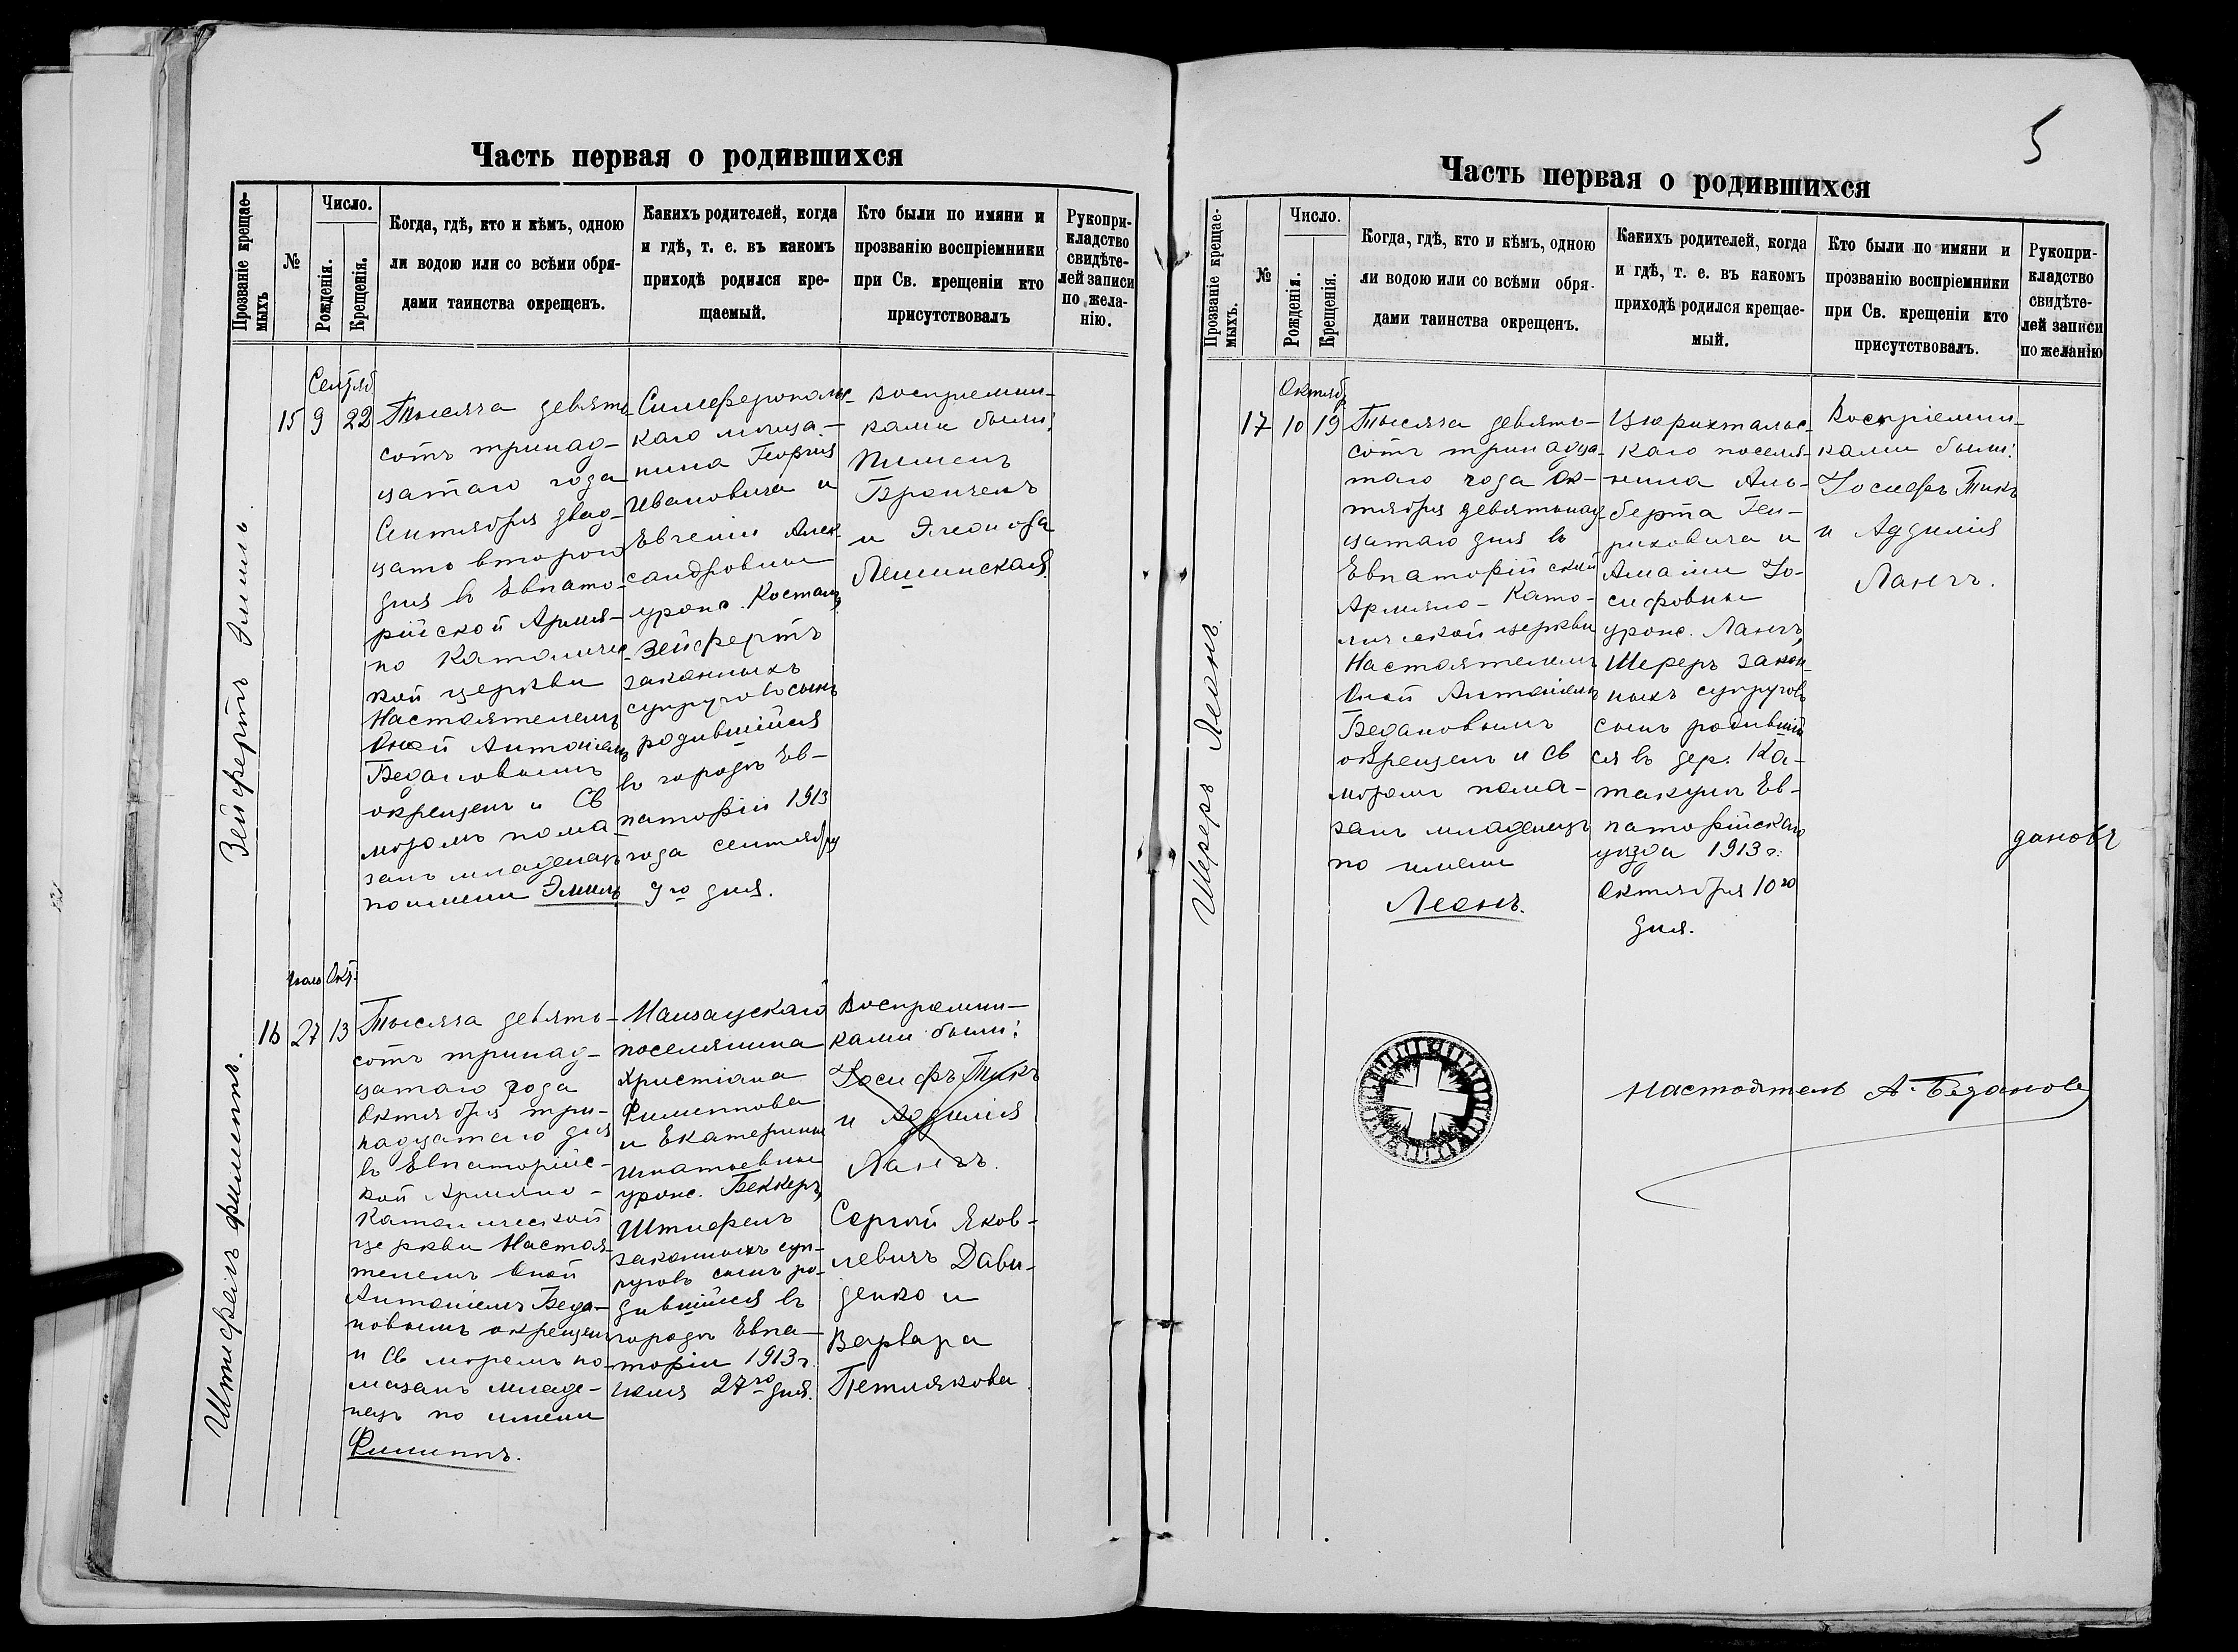 Часть первая о родившихся
Прозваніе крещае-
мыхъ
№
Число.
Рожденія.
Крещенія.
Когда, гдѣ, кто и кѣмъ, одною
ли водою или со всѣми обря-
дами таинства окрещенъ.
Какихъ родителей, когда
и гдѣ, т. е. въ какомъ
приходѣ родился кре-
щаемый.
Кто были по имяни и
прозванію воспріемники
при Св. крещеніи кто
присутствовалъ
Рукопри-
кладство
свидѣте-
лей записи
по жела-
нію.
Зейфертъ Эмиль
Сентяб
15 9 22
Тысяча девять-
сотъ тринад-
цатаго года
Сентября двад-
цать второго
дня въ Евпато-
рійской Армя-
но Католичес-
кой церкви
Настоятелемъ
Оной Антоніемъ
Бедановымъ
окрещенъ и Св
мѵромъ пома-
занъ младенецъ
по имени Эмиль
Симферопольс-
каго мѣща-
нина Георгія
Ивановича и
Евгеніи Алек-
сандровны
урожд. Косталь
Зейфертъ
законныхъ
супруговъ сынъ
родившійся
въ городѣ Ев-
паторіи 1913
года сентября
9го дня.
Воспріемни-
ками были:
Пименъ
Бронченъ
и Элеонора
Лешинская
Штифель Филиппъ.
Іюль Окт.
16 27 13
Тысяча девять-
сотъ тринад-
цатаго года
Октября три-
надцатаго дня
въ Евпаторійс-
кой Армяно-
Католической
церкви Настоя-
телемъ Оной
Антоніемъ Беда-
новымъ окрещенъ
и Св мѵромъ по-
мазанъ младе-
нецъ по имени
Филиппъ.
поселянина
Христіана
Филиппова
и Екатерины
Игнатьевны
урожд. Беккеръ,
Штифель
законныхъ суп-
руговъ сынъ ро-
дившійся въ
городѣ Евпа-
торіи 1913 г.
Іюля 27го дня.
Воспріемни-
ками были:
Іосифъ Тикъ
и Аделія
Лангъ.
Сергѣй Яков-
левичъ Дави-
денко и
Варвара
Петлякова
5
Часть первая о родившихся
Прозваніе крещае-
мыхъ.
№
Число.
Рожденія.
Крещенія.
Когда, гдѣ, кто и кѣмъ, одною
ли водою или со всѣми обря-
дами таинства окрещенъ.
Какихъ родителей, когда
и гдѣ, т. е. въ какомъ
приходѣ родился крещае-
мый.
Кто были по имяни и
прозванію воспріемники
при Св. крещеніи кто
присутствовалъ.
Рукопри-
кладство
свидѣте-
лей записи
по желанію
Шереръ Леонъ.
Октябр
17 10 19
Тысяча девять-
сотъ тринадца-
таго года Ок-
тября девятнад-
цатаго дня въ
Евпаторійской
Армяно-Като-
лической церкви
Настоятелемъ
Оной Антоніемъ
Бедановымъ
окрещенъ и Св
мѵромъ пома-
занъ младенецъ
по имени
Леонъ.
Цюрихтальс-
каго поселя-
нина Аль-
берта Ген-
риховича и
Амаліи Іо-
сифовны
урожд. Лангъ,
Шереръ закон-
ныхъ супруговъ
сынъ родившій
ся въ дер. Ка-
такулъ Ев-
паторійскаго
уѣзда 1913 г.
Октября 10го
дня.
Воспріемни-
ками были:
Іосифъ Тикъ
и Аделія
Лангъ.
дановъ
Настоятель А. Бедановъ